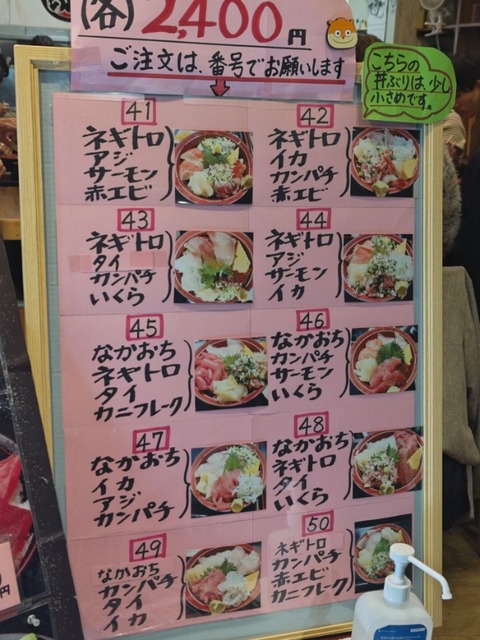 (各) 2,400円
ご注文は、番号でお願いします
こちらの
丼ぶりは、少し
小さめです。
41
ネギトロ
アジ
サーモン
赤エビ
42
ネギトロ
イカ
カンパチ
赤エビ
43
ネギトロ
タイ
カンパチ
いくら
44
ネギトロ
アジ
サーモン
イカ
45
なかおち
ネギトロ
タイ
カニフレーク
46
なかおち
カンパチ
サーモン
いくら
47
なかおち
イカ
アジ
カンパチ
48
なかおち
ネギトロ
タイ
いくら
49
なかおち
カンパチ
タイ
イカ
50
ネギトロ
カンパチ
赤エビ
カニフレーク